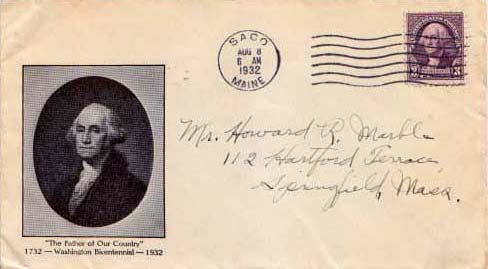 SACO
AUG 8
6 AM
1932
MAINE
3
3
Mr. Howard R. Marble
112 Hartford Terrace,
Springfield, Mass.
"The Father of Our Country"
1732 — Washington Bicentennial — 1932